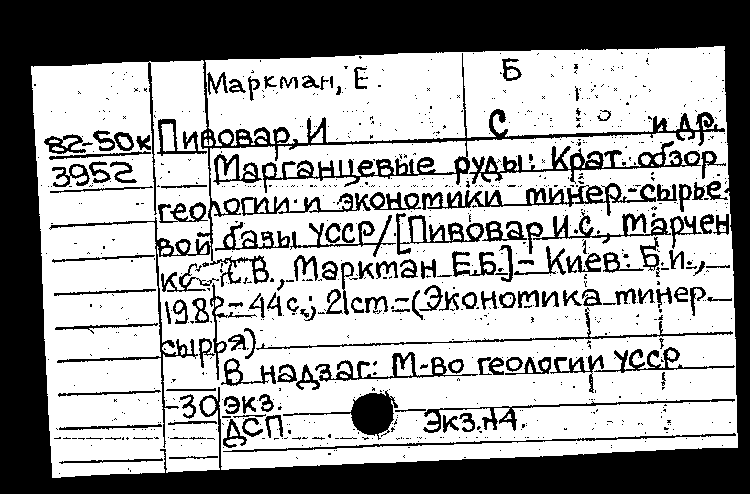 Маркман, Е. Б
82-50к Пивовар, И С и др.
3952 Марганцевые руды: Крат. обзор
геологии и экономики минер.-сырье-
вой базы УССР/[Пивовар И.С., Марчен
ко .В., Маркман Е.Б.]- Киев: Б.и.,
1982- 44с.; 21см.-(Экономика минер.
сырья).
В надзаг.: М-во геологии УССР.
30 экз.
ДСП. Экз.N4.